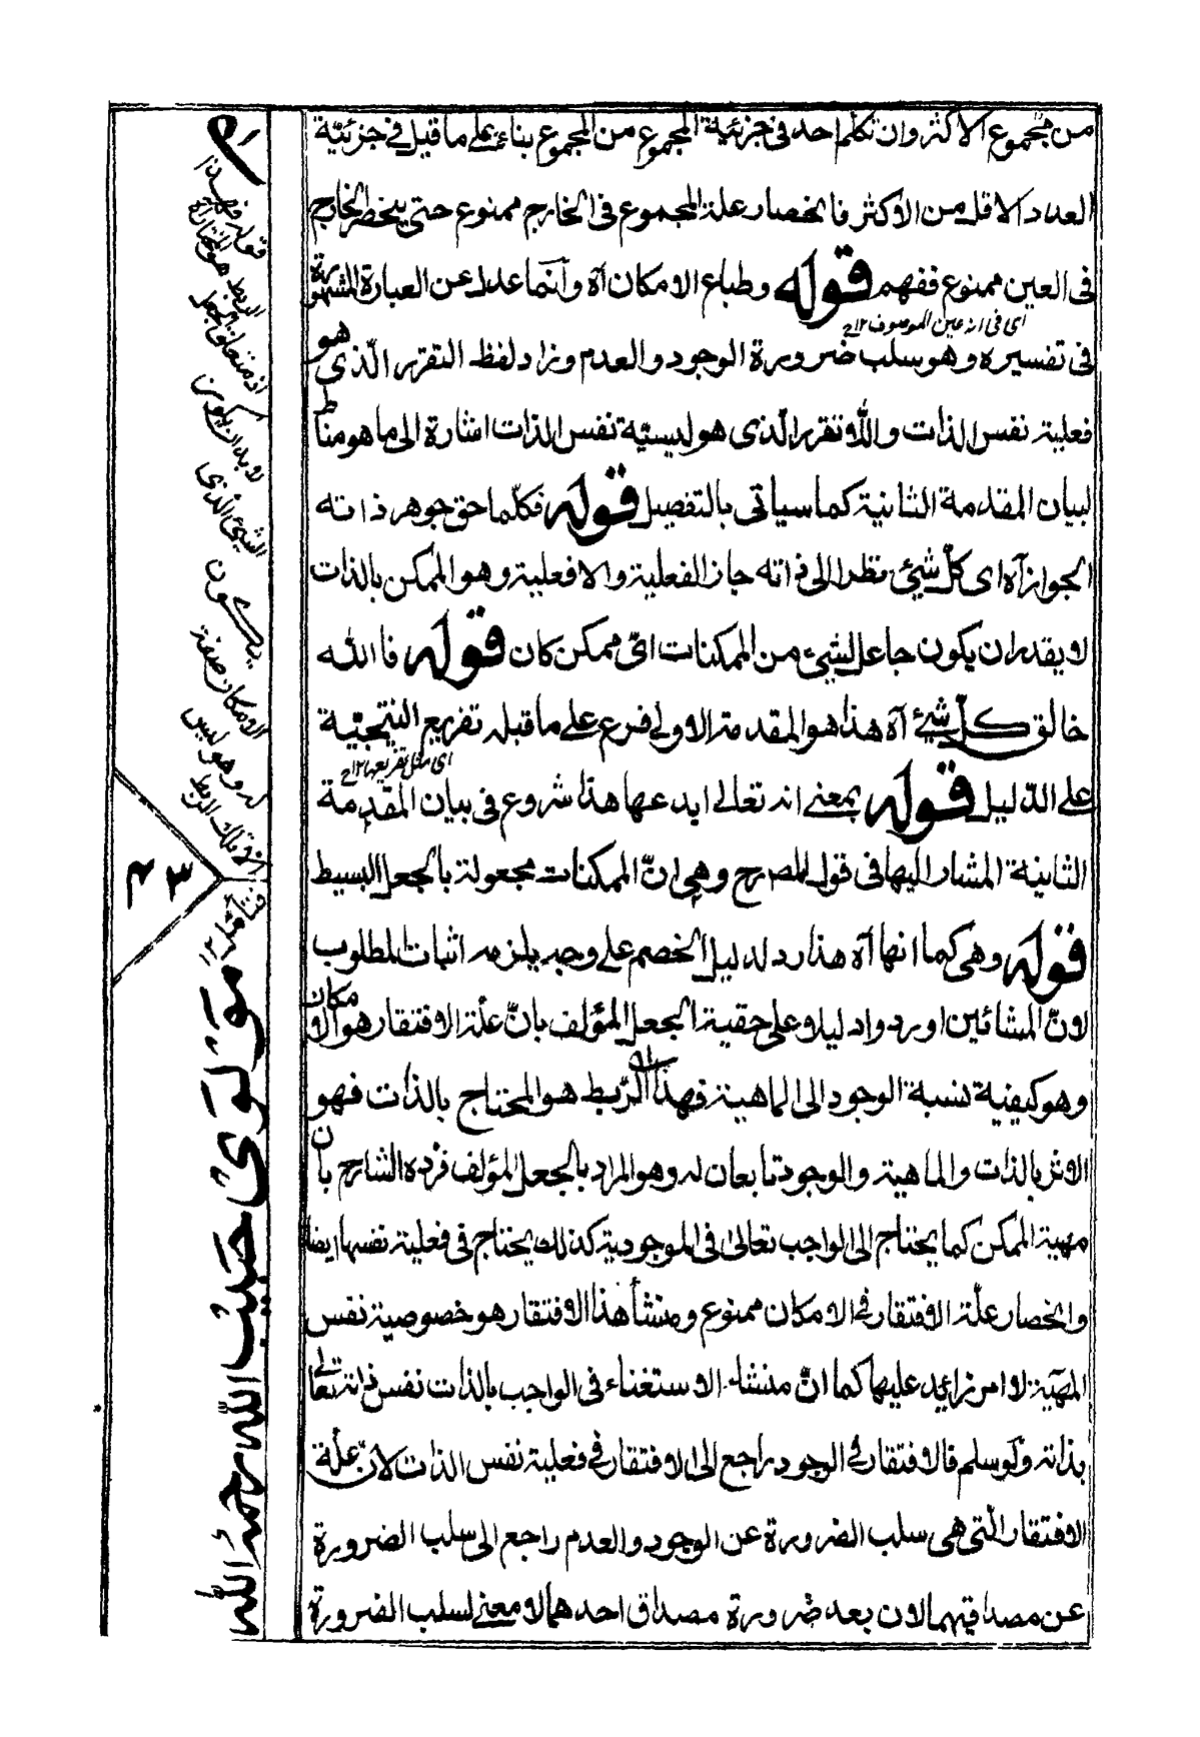 من مجموع الاكثر وان تكلم احد فى جزئية المجموع من المجموع بناء على ما قيل فى جزئية
العدد الاقل من الاكثر فانحصار علة المجموع فى الخارج ممنوع حتى ينحصر الخارج
فى العين ممنوع ففهم قوله وطباع الامكان آه وانّما عدل عن العبارة المشهورة
اى فى انه عين الموصوف ١٢ح
فى تفسيره وهو سلب ضرورة الوجود والعدم وزاد لفظ التقرر الّذى هو
فعلية نفس الذات واللاتقرر الّذى هو ليسيّة نفس الذات اشارة الى ما هو مناط
لبيان المقدمة الثانية كما سياتى بالتفصيل قوله فكلّما حق جوهر ذاته
الجواز آه اى كلّ شيئ نظرا الى ذاته جاز الفعلية والافعلية وهو الممكن بالذات
لا يقدر ان يكون جاعل لشيئ من الممكنات اىّ ممكن كان قوله فاالله
خالق كلّ شيئ آه هذا هو المقدمة الاولى فرع على ما قبله تفريع النتيجيّة
اى مثل تفريعها ١٢ح
على الدّليل قوله بمعنى انه تعالى ابدعها هذا شروع فى بيان المقدمة
الثانية المشار اليها فى قول المصرح وهى انّ الممكنات مجعولة بالجعل البسيط
قوله وهى كما انها آه هذا رد لدليل الخصم على وجه يلزمه اثبات المطلوب
لانّ المشائين اوردوا دليلا على حقية الجعل المؤلف بانّ علّة الافتقار هو الامكان
وهو كيفية نسبة الوجود الى الماهية فهذا الرّبط هو المحتاج بالذات فهو
الاثر بالذات والماهية والوجود تابعان له وهو المراد بالجعل المؤلف فرده الشارح بان
مهية الممكن كما يحتاج الى الواجب تعالى فى الموجودية كذلك يحتاج فى فعلية نفسها ايضا
وانحصار علّة الافتقار فى الامكان ممنوع ومنشأ هذا الافتقار هو خصوصية نفس
المهيّة لا امر زايد عليها كما انّ منشاء الاستغناء فى الواجب بالذات نفس ذاته تعالى
بذاته ولو سلم فالافتقار فى الوجود راجع الى الافتقار فى فعلية نفس الذات لانّ علّة
الافتقار الّتى هى سلب الضرورة عن الوجود والعدم راجع الى سلب الضرورة
عن مصداقيهما لان بعد ضرورة مصداق احدهما لا معنى لسلب الضرورة
اذ متعلق الجعل
لا بد ان يكون
الشيئ الّذى
يكون
الامكان صفة
له وهو ليس
الا ذلك الربط
٣
مولوى حبيب الله رحمه الله